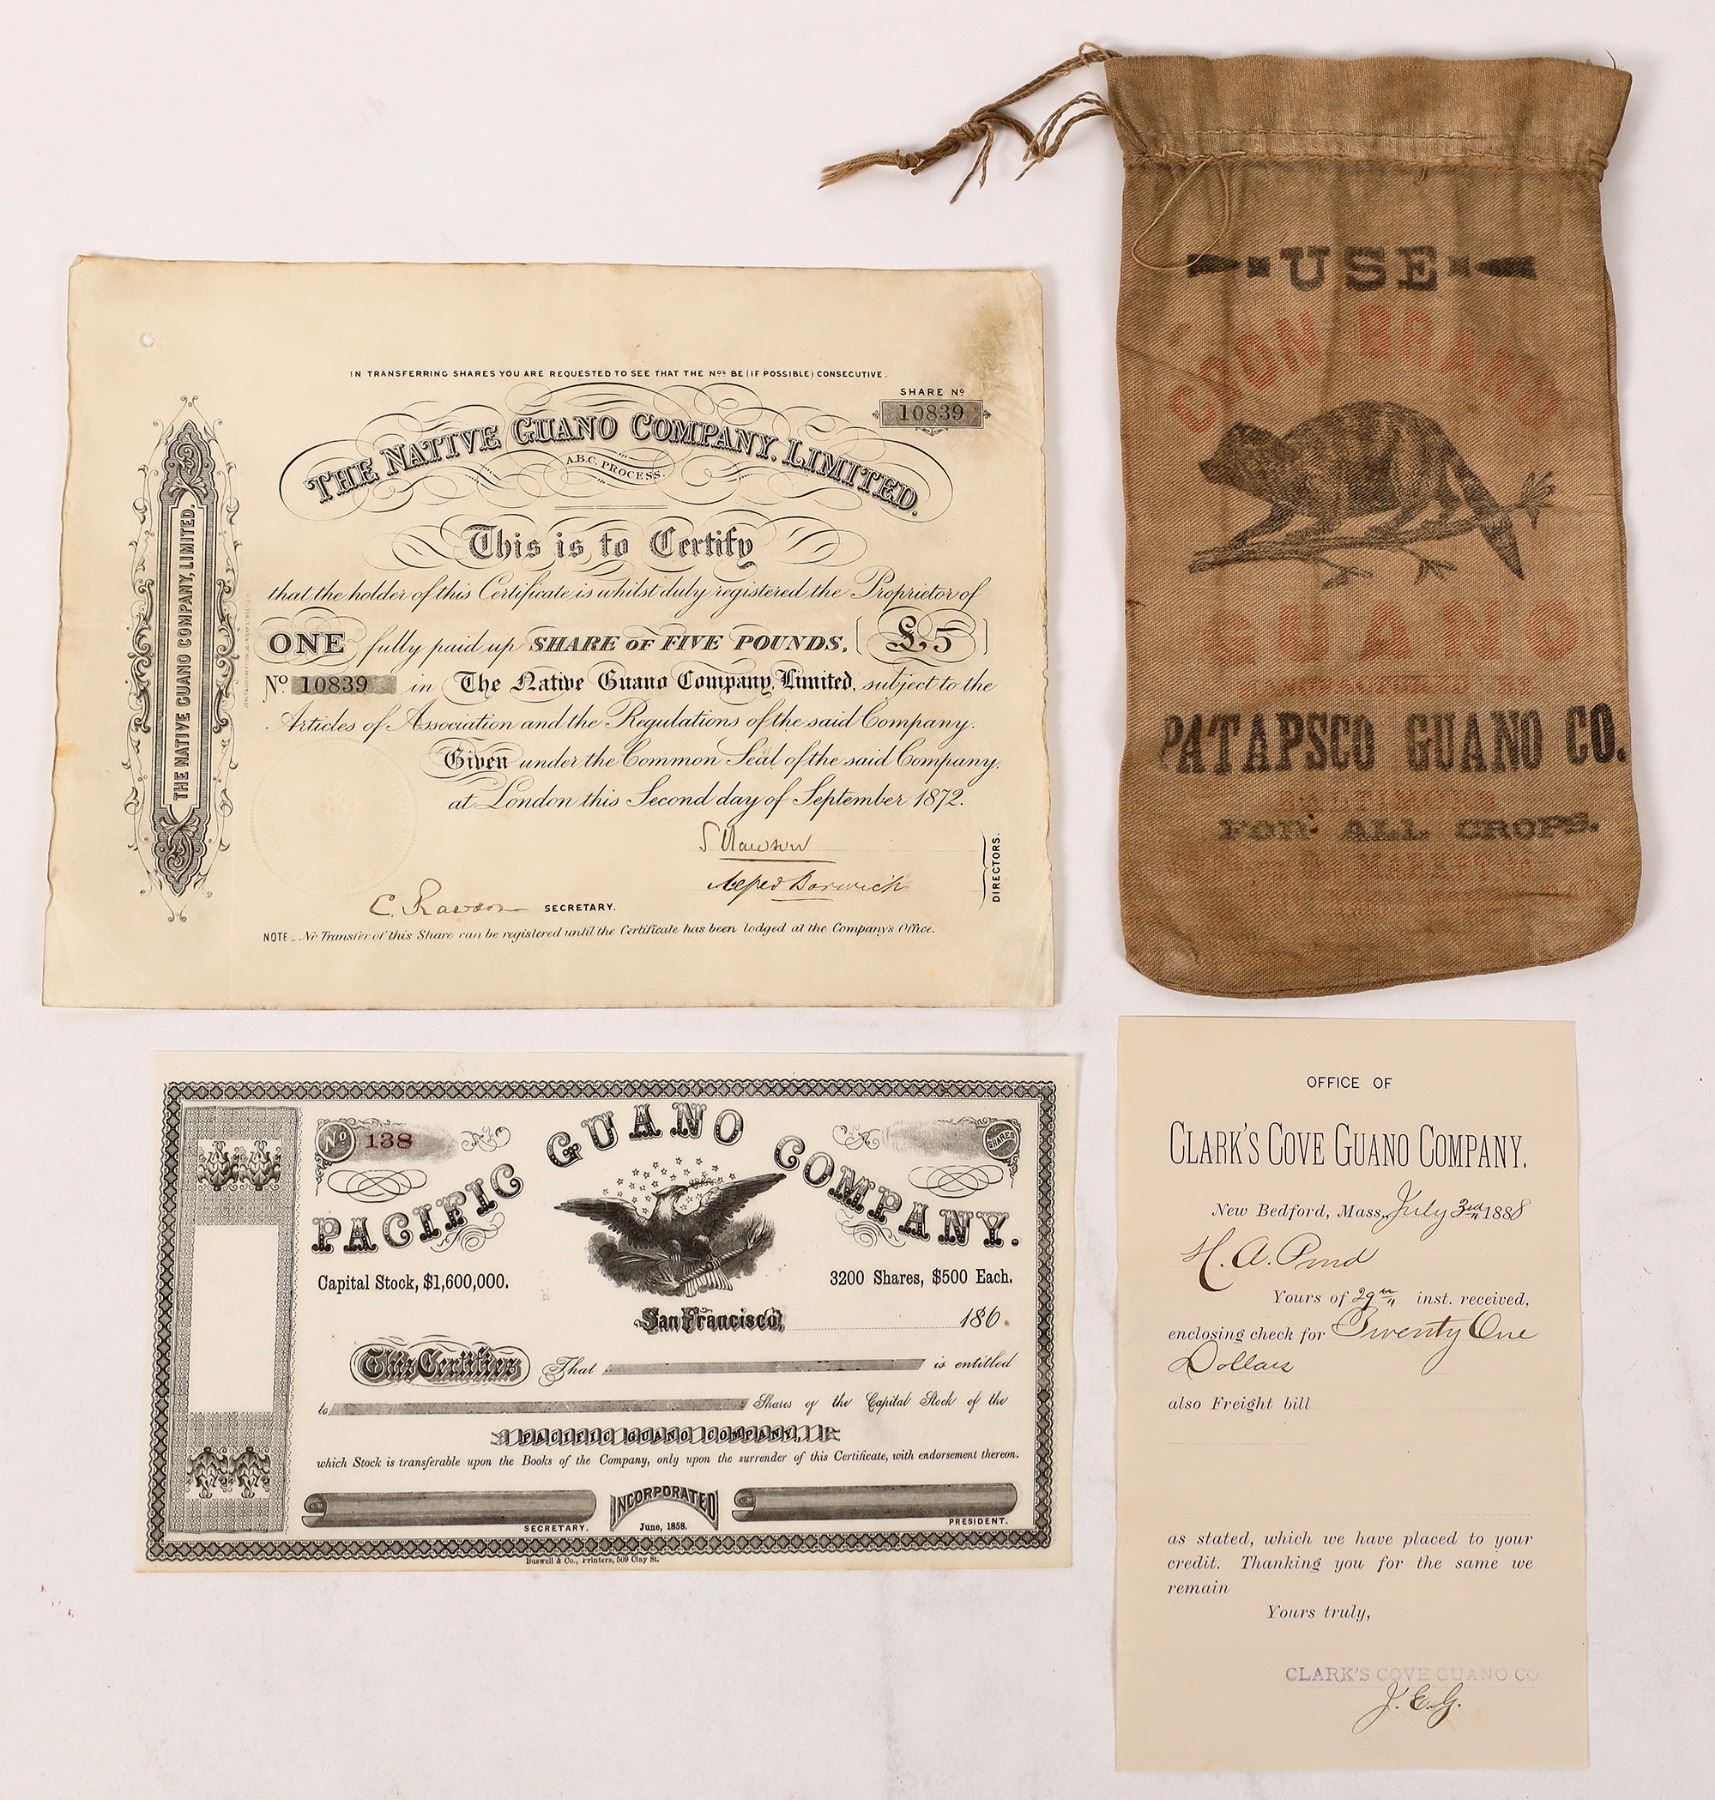 IN TRANSFERRING SHARES YOU ARE REQUESTED TO SEE THAT THE Nos BE (IF POSSIBLE) CONSECUTIVE.
SHARE No
10839
THE NATIVE GUANO COMPANY, LIMITED.
A.B.C. PROCESS.
This is to Certify
that the holder of this Certificate is whilst duly registered the Proprietor of
ONE fully paid up SHARE OF FIVE POUNDS, (£5)
No 10839 in The Native Guano Company, Limited, subject to the
Articles of Association and the Regulations of the said Company.
Given under the Common Seal of the said Company,
at London this Second day of September 1872.
DIRECTORS.
C. Rawson SECRETARY.
NOTE _ No Transfer of this Share can be registered until the Certificate has been lodged at the Company's Office.
THE NATIVE GUANO COMPANY, LIMITED.
USE
COON BRAND
GUANO
MANUFACTURED BY
PATAPSCO GUANO CO.
BALTIMORE
FOR ALL CROPS.
No 138
SHARES
PACIFIC GUANO COMPANY.
Capital Stock, $1,600,000.
3200 Shares, $500 Each.
San Francisco, 186 .
This Certifies That is entitled
to Shares of the Capital Stock of the
PACIFIC GUANO COMPANY,
which Stock is transferable upon the Books of the Company, only upon the surrender of this Certificate, with endorsement thereon.
SECRETARY.
INCORPORATED
June, 1858.
PRESIDENT.
Buswell & Co., Printers, 509 Clay St.
OFFICE OF
CLARK'S COVE GUANO COMPANY.
New Bedford, Mass., July 3rd 1888
H. A. Pond
Yours of 29th inst. received,
enclosing check for Twenty One
Dollars
also Freight bill
as stated, which we have placed to your
credit. Thanking you for the same we
remain
Yours truly,
CLARK'S COVE GUANO CO.
J.E.G.